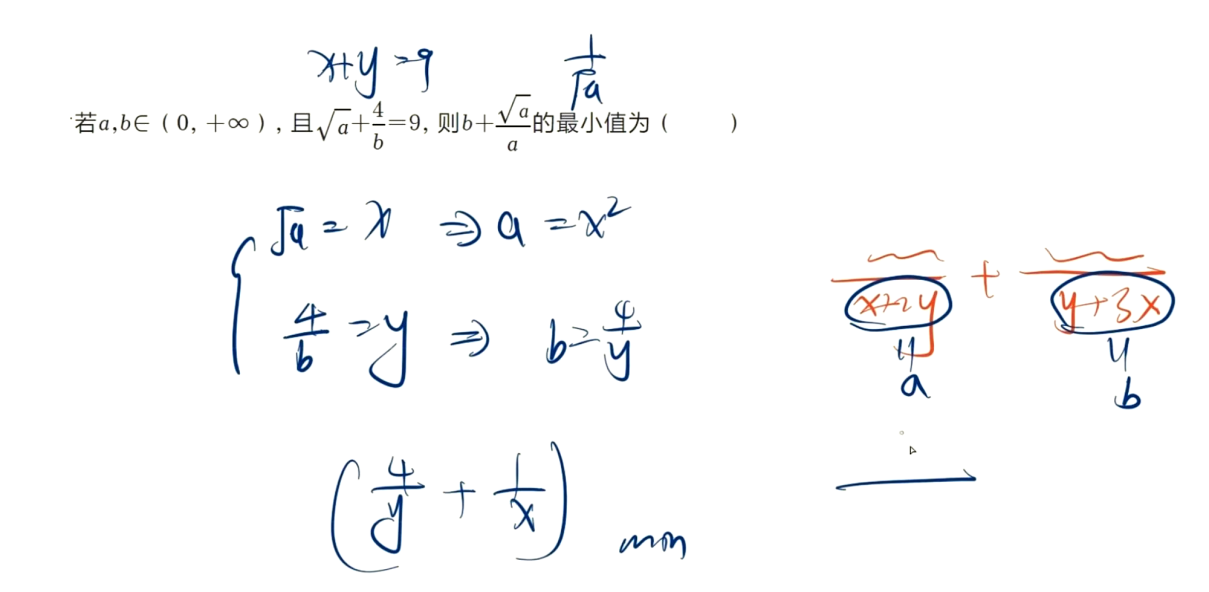 x+y=9
1/√a
若a,b∈(0,+∞),且√a+4/b=9,则b+√a/a的最小值为( )
√a=x ⇒ a=x²
4/b=y ⇒ b=4/y
(4/y+1/x) min
x+2y + y+3x
a b